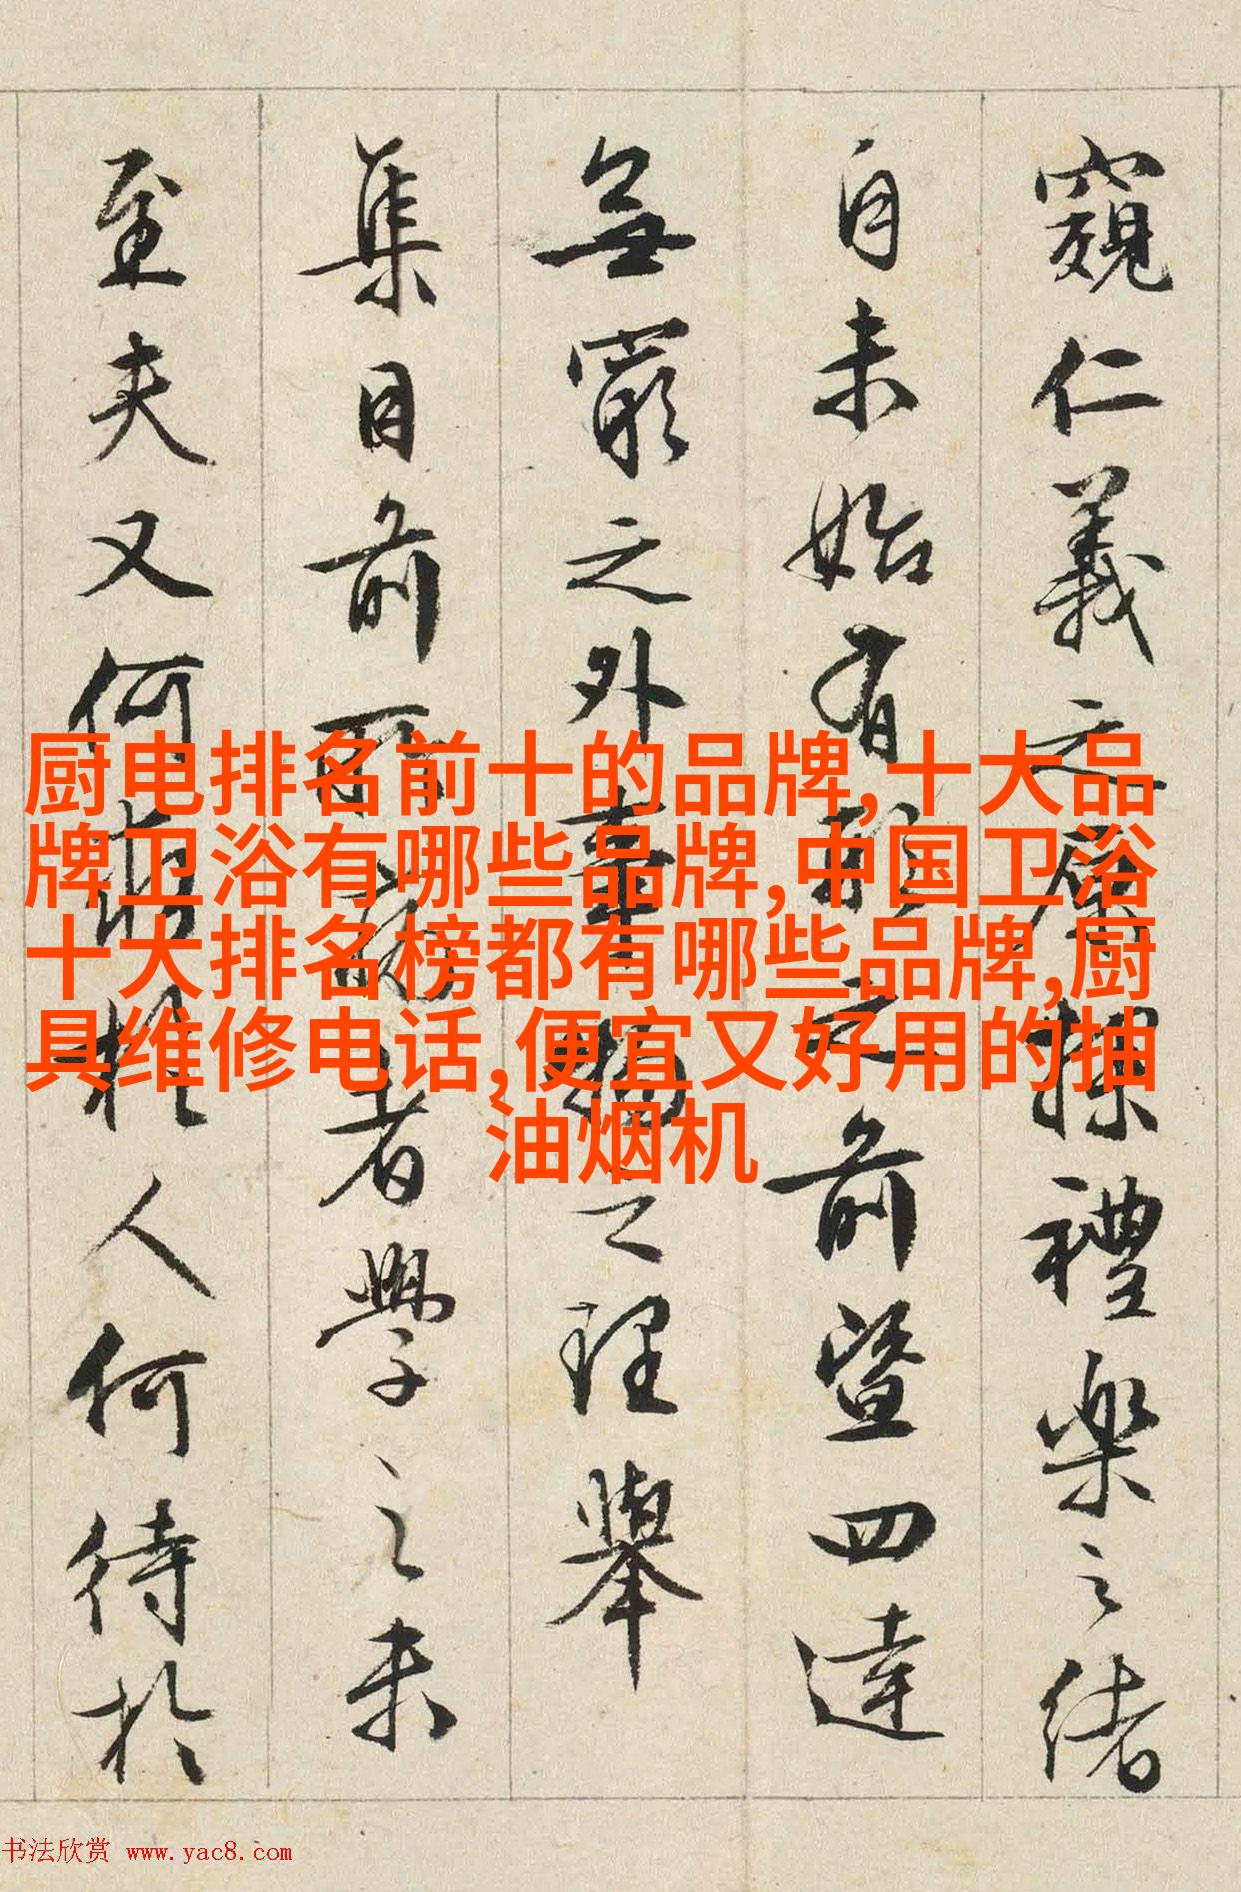 窺仁義之原探禮樂之緒
自未始有形之前暨四達
無窮之外幸編之理舉
集目前可議者學之未
至夫又何萌於人何待於
厨电排名前十的品牌,十大品
牌卫浴有哪些品牌,中国卫浴
十大排名榜都有哪些品牌,厨
具维修电话,便宜又好用的抽
油烟机
书法欣赏 www.yac8.com